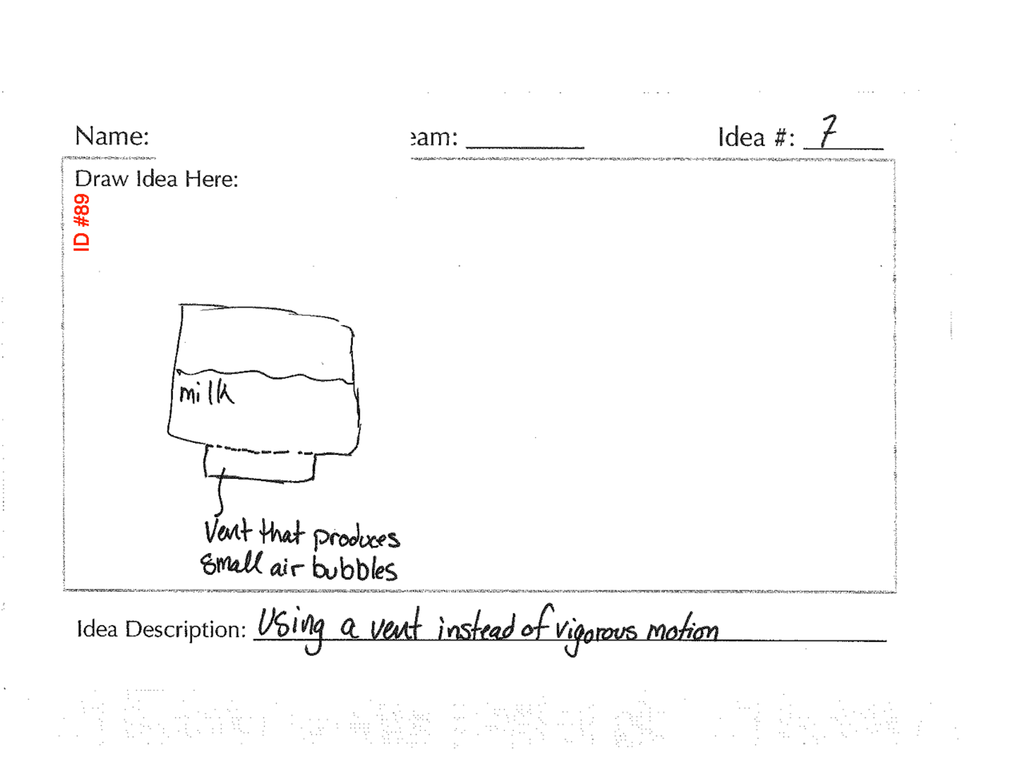 Name:
eam:
Idea #: 7
Draw Idea Here:
ID #89
milk
Vent that produces
small air bubbles
Idea Description: Using a vent instead of vigorous motion